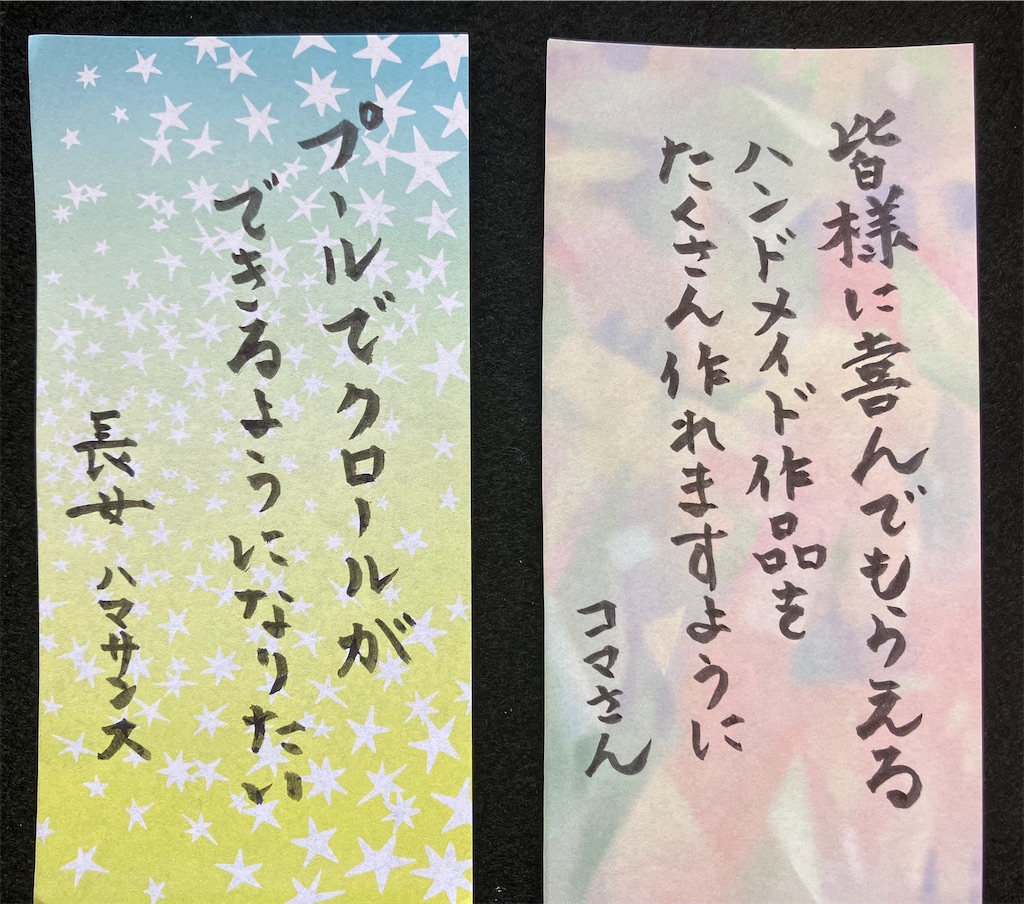 プールでクロールが
できるようになりたい
長女 ハマサンス
皆様に喜んでもらえる
ハンドメイド作品を
たくさん作れますように
コマさん